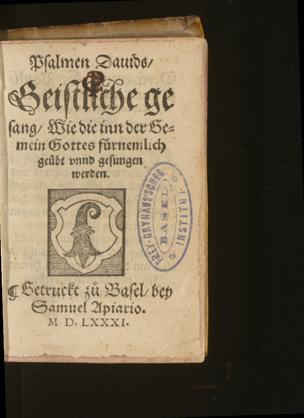 Psalmen Dauids/
Geistliche ge
sang/ Wie die inn der Ge-
mein Gottes fürnemlich
geübt vnnd gesungen
werden.
FREY-GRYNÆISCHES
INSTITUT
BASEL
¶ Getruckt zů Basel/ bey
Samuel Apiario.
M D. LXXXI.